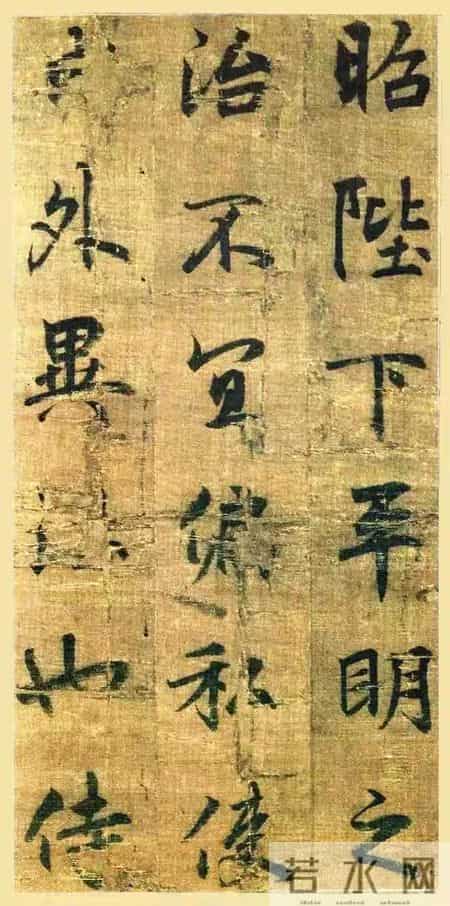 昭陛下平明之
治不宜偏私使
外異也侍
若水网